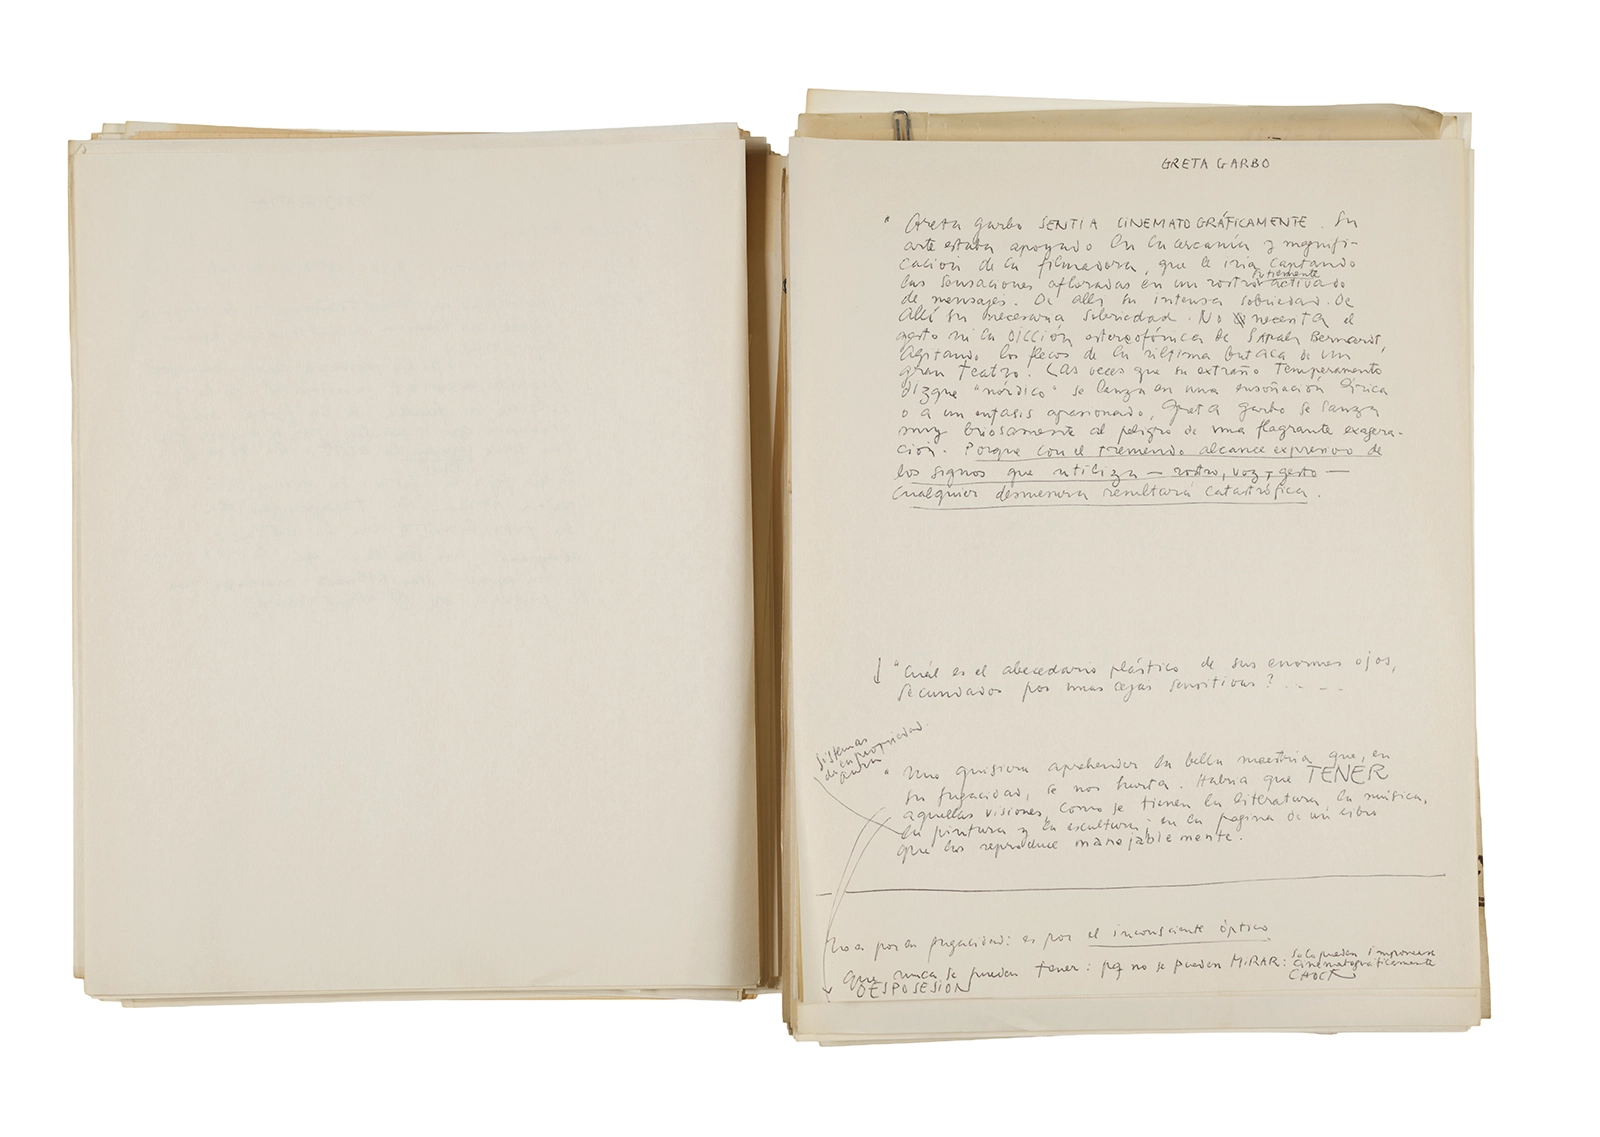 GRETA GARBO
" Greta Garbo SENTIA CINEMATOGRÁFICAMENTE. Su
arte estaba apoyado en la cercanía y magnifi-
cación de la filmadora, que le iría captando
las sensaciones afloradas en un rostro activado
de mensajes. De allí su intensa sobriedad. De
Allí su necesaria sobriedad. No necesita el
gesto ni la DICCIÓN estereofónica de SARAH Bernardt,
Agitando los flecos de la última butaca de un
gran Teatro. Las veces que su extraño Temperamento
dizque "nórdico" se lanza en una ensoñación lírica
o a un enfasis apasionado, Greta Garbo se lanza
muy briosamente al peligro de una flagrante exagera-
ción. Porque con el tremendo alcance expresivo de
los signos que utiliza — rostro, voz, gesto —
cualquier desmesura resultará catastrófica.
"Cuál es el abecedario plástico de sus enormes ojos,
secundados por unas cejas sensitivas? . . - -
sistemas
de la propiedad
" Uno quisiera aprehender la bella maestria que, en
su fugacidad, se nos hurta. Habria que TENER
aquellas visiones, como se tienen la literatura, la música,
la pintura y la escultura; en la pagina de un libro
que los reproduce manejablemente.
No es por su fugacidad: es por el inconsciente óptico
que nunca se pueden tener: pq no se pueden MIRAR: solo pueden imponerse
cinematográficamente
CAOEN
DESPOSESION